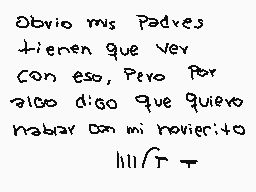 Obvio mis Padres
tienen que ver
con eso, Pero Por
algo digo que quiero
hablar con mi noviecito